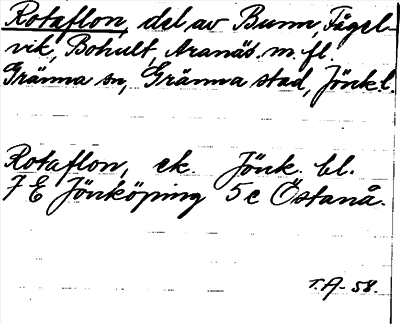 Rotaflon, del av Bunn, Fågel-
vik, Bohult, Aranäs m. fl.
Gränna sn, Gränna stad, Jönk. l.
Rotaflon, ek. Jönk. bl.
7 E Jönköping 5 c Östanå.
T. A - 58.